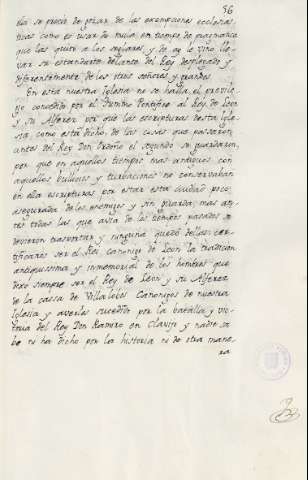 56
ela se precia de gozar de las exempciones eclesias
ticas como es usar de mula en tiempo de pragmatica
que las quitó a los seglares, y de ay le vino lle
var su estandarte delante del Rey desplegado y
diferentemente de los otros señores y grandes.
En esta nuestra Iglesia no se halla el previle
gio concedido por el Summo Pontifice al Rey de Leon
y su Alferez por que las escripturas desta Igle
sia, como está dicho, de las cosas que passaron
antes del Rey Don Ordoño el segundo se guardaron,
por que en aquellos tiempos mas antiguos con
aquellos bullicios y turbaciones no conservaban
en ella escripturas por estar esta ciudad poco
asegurada de los enemigos y sin guarda, mas an
tes todas las que avia de los tiempos pasados se
devieron trasportar y ninguna quedó delas cer
tificarse ser el Rei canonigo de Leon la tradicion
antiquissima y inmemorial de los hombres que
dixo siempre ser el Rey de Leon y su Alferez
de la cassa de Villalobos Canonigos de nuestra
Iglesia y averles sucedido por la batalla y vic
toria del Rey Don Ramiro en Clavijo y nadie sa
be ni ha dicho por la historia ni de otra mane
ra